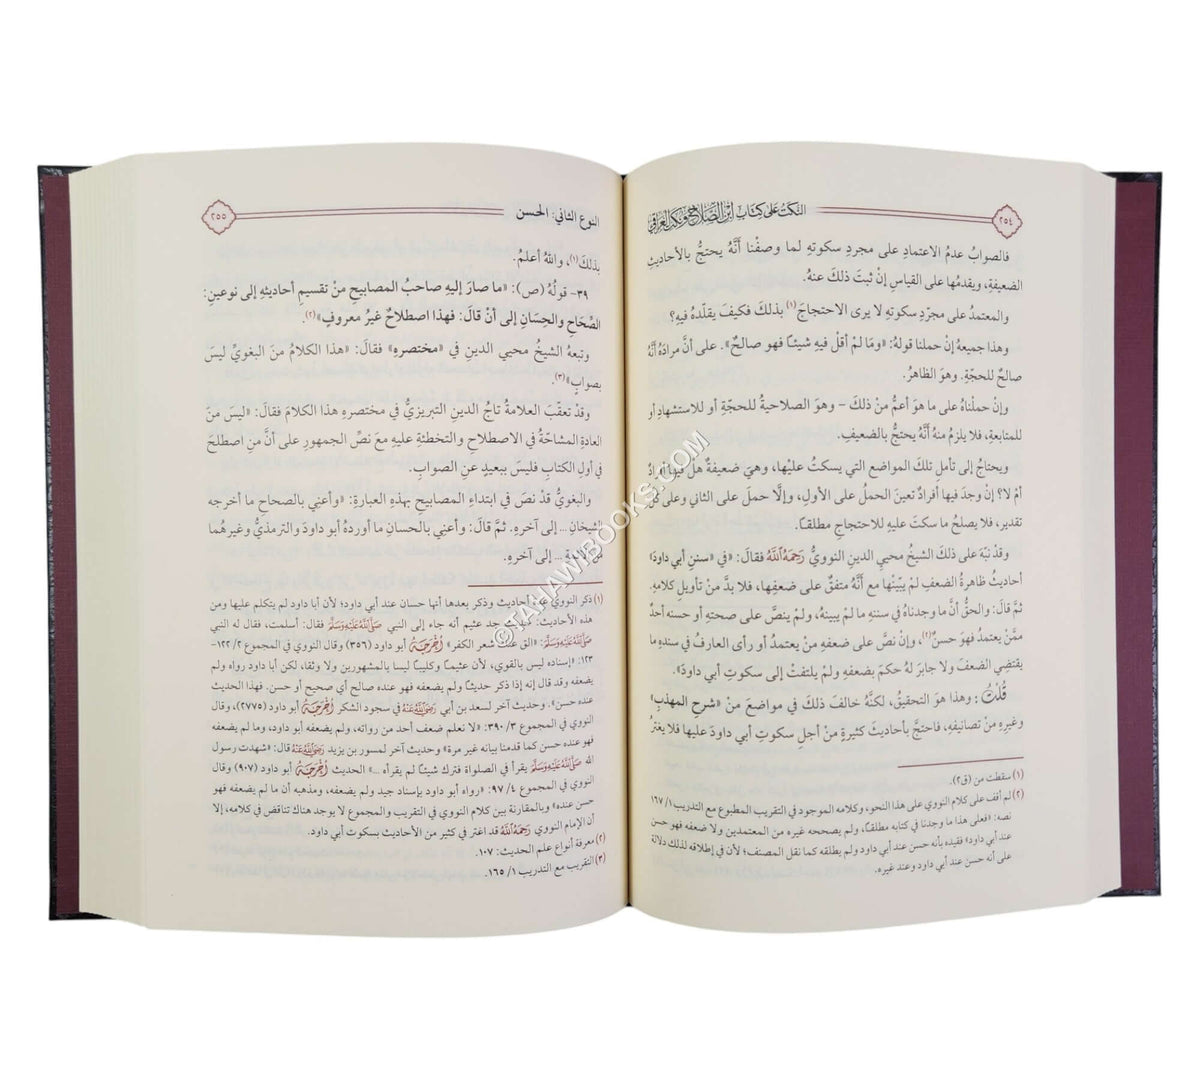 ٢٥٤
النكت على كتاب ابن الصلاح ونكت العراقي
فالصوابُ عدمُ الاعتمادِ على مجردِ سكوتهِ لما وصفْنا أَنَّهُ يحتجُّ بالأحاديثِ
الضعيفةِ، ويقدمُها على القياسِ إنْ ثبتَ ذلكَ عنهُ.
والمعتمدُ على مجرّدِ سكوتهِ لا يرى الاحتجاجَ(١) بذلكَ فكيفَ يقلّدهُ فيهِ؟
وهذا جميعهُ إنْ حملنا قولهُ: «ومَا لمْ أقلْ فيهِ شيئًا فهو صالحٌ». على أن مرادَهُ أنَّهُ
صالحٌ للحجّةِ. وهوَ الظاهرُ.
وإنْ حملْناهُ على ما هوَ أعمُّ منْ ذلكَ – وهوَ الصلاحيةُ للحجّةِ أو للاستشهادِ أو
للمتابعةِ، فلا يلزمُ منهُ أَنَّهُ يحتجُّ بالضعيفِ.
ويحتاجُ إلى تأملِ تلكَ المواضعِ التي يسكتُ عليْها، وهيَ ضعيفةٌ هلْ فيها أفرادٌ
أمْ لا؟ إنْ وجدَ فيها أفرادٌ تعينَ الحملُ على الأولِ، وإلَّا حملَ على الثاني وعلى كلِّ
تقديرٍ، فلا يصلحُ ما سكتَ عليهِ للاحتجاجِ مطلقًا.
وقدْ نبّهَ على ذلكَ الشيخُ محييِ الدينِ النوويُّ رَحِمَهُ ٱللَّهُ فقالَ: «في «سننِ أبي داودَ»
أحاديثُ ظاهرةُ الضعفِ لمْ يبيّنْها معَ أَنَّهُ متفقٌ على ضعفِها، فلا بدَّ منْ تأويلِ كلامهِ.
ثمَّ قالَ: والحقُّ أنَّ ما وجدناهُ في سننهِ ما لمْ يبينهُ، ولمْ ينصَّ على صحتهِ أو حسنه أحدٌ
ممَّنْ يعتمدُ فهوَ حسنٌ(٢)، وإنْ نصَّ على ضعفهِ منْ يعتمدُ أو رأى العارفُ في سندهِ ما
يقتضِي الضعفَ ولا جابرَ لهُ حكمَ بضعفهِ ولمْ يلتفتْ إلى سكوتِ أبي داودَ».
قُلْتُ: وهذا هوَ التحقيقُ، لكنَّهُ خالفَ ذلكَ في مواضعَ منْ «شرحِ المهذبِ»
وغيرِه منْ تصانيفهِ، فاحتجَّ بأحاديثَ كثيرةٍ منْ أجلِ سكوتِ أبي داودَ عليها فلا يغترُّ
(١) سقطت من (ق٢).
(٢) لم أقف على كلام النووي على هذا النحو، وكلامه الموجود في التقريب المطبوع مع التدريب ١/ ١٦٧
نصه: «فعلى هذا ما وجدنا في كتابه مطلقًا، ولم يصححه غيره من المعتمدين ولا ضعفه فهو حسن
عند أبي داود» فقيده بأنه حسن عند أبي داود ولم يطلقه كما نقل المصنف؛ لأن في إطلاقه لذلك دلالة
على أنه حسن عند أبي داود وعند غيره.
النوع الثاني: الحسن
٢٥٥
بذلكَ(١)، واللهُ أعلمُ.
٣٩- قولهُ (ص): «ما صارَ إليهِ صاحبُ المصابيحِ منْ تقسيمِ أحاديثهِ إلى نوعينِ:
الصِّحَاحِ والحِسَانِ إلى أنْ قالَ: فهذا اصطلاحٌ غيرُ معروفٍ»(٢).
وتبعهُ الشيخُ محييِ الدينِ في «مختصرهِ» فقالَ: «هذا الكلامُ منَ البغويِّ ليسَ
بصوابٍ»(٣).
وقدْ تعقبَ العلامةُ تاجُ الدينِ التبريزيُّ في مختصرهِ هذا الكلامَ فقالَ: «ليسَ منَ
العادةِ المشاحّةُ في الاصطلاحِ والتخطئةِ عليهِ معَ نصِّ الجمهورِ على أنَّ من اصطلحَ
في أولِ الكتابِ فليسَ ببعيدٍ عنِ الصوابِ.
والبغويُّ قدْ نصَّ في ابتداءِ المصابيحِ بهذهِ العبارةِ: «وأعنِي بالصحاحِ ما أخرجه
الشيخان … إلى آخرهِ. ثمَّ قالَ: وأعنِي بالحسانِ ما أوردهُ أبو داودَ والترمذيُّ وغيرهُما
… إلى آخرهِ.
(١) ذكر النووي عدة أحاديث وذكر بعدها أنها حسان عند أبي داود؛ لأن أبا داود لم يتكلم عليها ومن
هذه الأحاديث: حديث جد عثيم أنه جاء إلى النبي صَلَّى اللَّهُ عَلَيْهِ وَسَلَّمَ فقال: أسلمت، فقال له النبي
صَلَّى اللَّهُ عَلَيْهِ وَسَلَّمَ: «الق عنك شعر الكفر» أَخْرَجَهُ أبو داود (٣٥٦) وقال النووي في المجموع ٢/ ١٢٢-
١٢٣: «إسناده ليس بالقوي، لأن عثيمًا وكليبًا ليسا بالمشهورين ولا وثقا، لكن أبا داود رواه ولم
يضعفه وقد قال إنه إذا ذكر حديثًا ولم يضعفه فهو عنده صالح أي صحيح أو حسن. فهذا الحديث
عنده حسن». وحديث آخر لسعد بن أبي رَضِيَ اللَّهُ عَنْهُ في سجود الشكر أَخْرَجَهُ أبو داود (٢٧٧٥)، وقال
النووي في المجموع ٣/ ٣٩٠: «لا نعلم ضعف أحد من رواته، ولم يضعفه أبو داود، وما لم يضعفه
فهو عنده حسن كما قدمنا بيانه غير مرة» وحديث آخر لمسور بن يزيد رَضِيَ اللَّهُ عَنْهُ قال: «شهدت رسول
الله صَلَّى اللَّهُ عَلَيْهِ وَسَلَّمَ يقرأ في الصلواة فترك شيئًا لم يقرأه …» الحديث أَخْرَجَهُ أبو داود (٩٠٧) وقال
النووي في المجموع ٤/ ٩٧: «رواه أبو داود بإسناد جيد ولم يضعفه، ومذهبه أن ما لم يضعفه فهو
حسن عنده» وبالمقارنة بين كلام النووي في التقريب والمجموع لا يوجد هناك تناقض في كلامه، إلا أن
الإمام النووي رَحِمَهُ ٱللَّهُ قد اعتر في كثير من الأحاديث بسكوت أبي داود.
(٢) معرفة أنواع علم الحديث: ١٠٧.
(٣) التقريب مع التدريب ١/ ١٦٥.
©TAHAWIBOOKS.COM